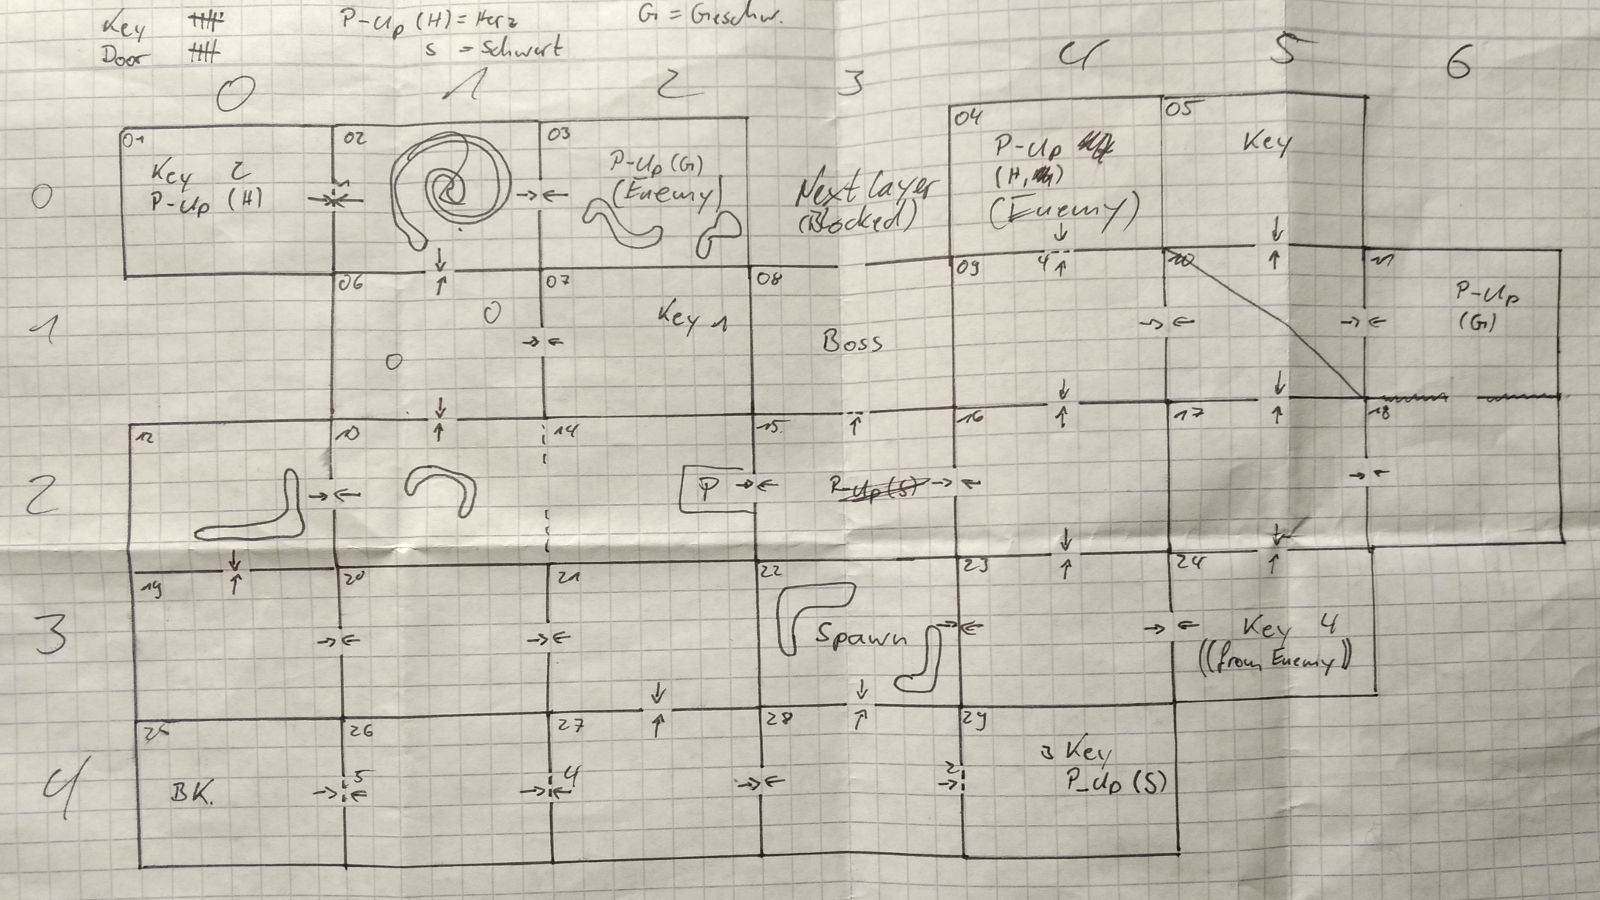 Key 5 P-Up (H) = Herz G = Geschw.
Door S = Schwert
0 1 2 3 4 5 6
01 02 03 04 05
0
Key 2
P-Up (H)
P-Up (G)
(Enemy)
Next layer
(Blocked)
P-Up
(H, )
(Enemy)
Key
06 07 08 09 4 10 11
1
Key 1
Boss
P-Up
(G)
12 13 14 15 16 17 18
2
P
P-Up (S)
19 20 21 22 23 24
3
Spawn
Key 4
((from Enemy))
25 26 27 28 29
4
BK.
5
4
2
3 Key
P-Up (S)